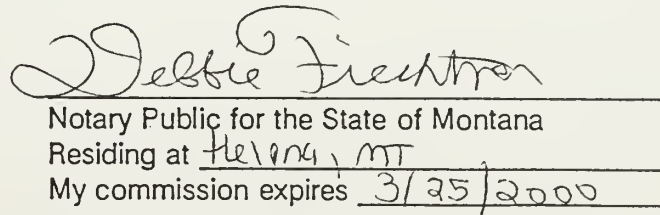 Debbie
Notary Public for the State of Montana
Residing at Helena, MT
My commission expires 3/25/2000